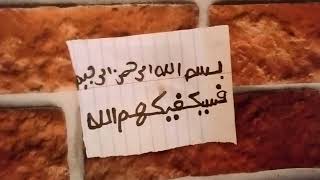 بسم الله الرحمن الرحيم
فسيكفيكهم الله